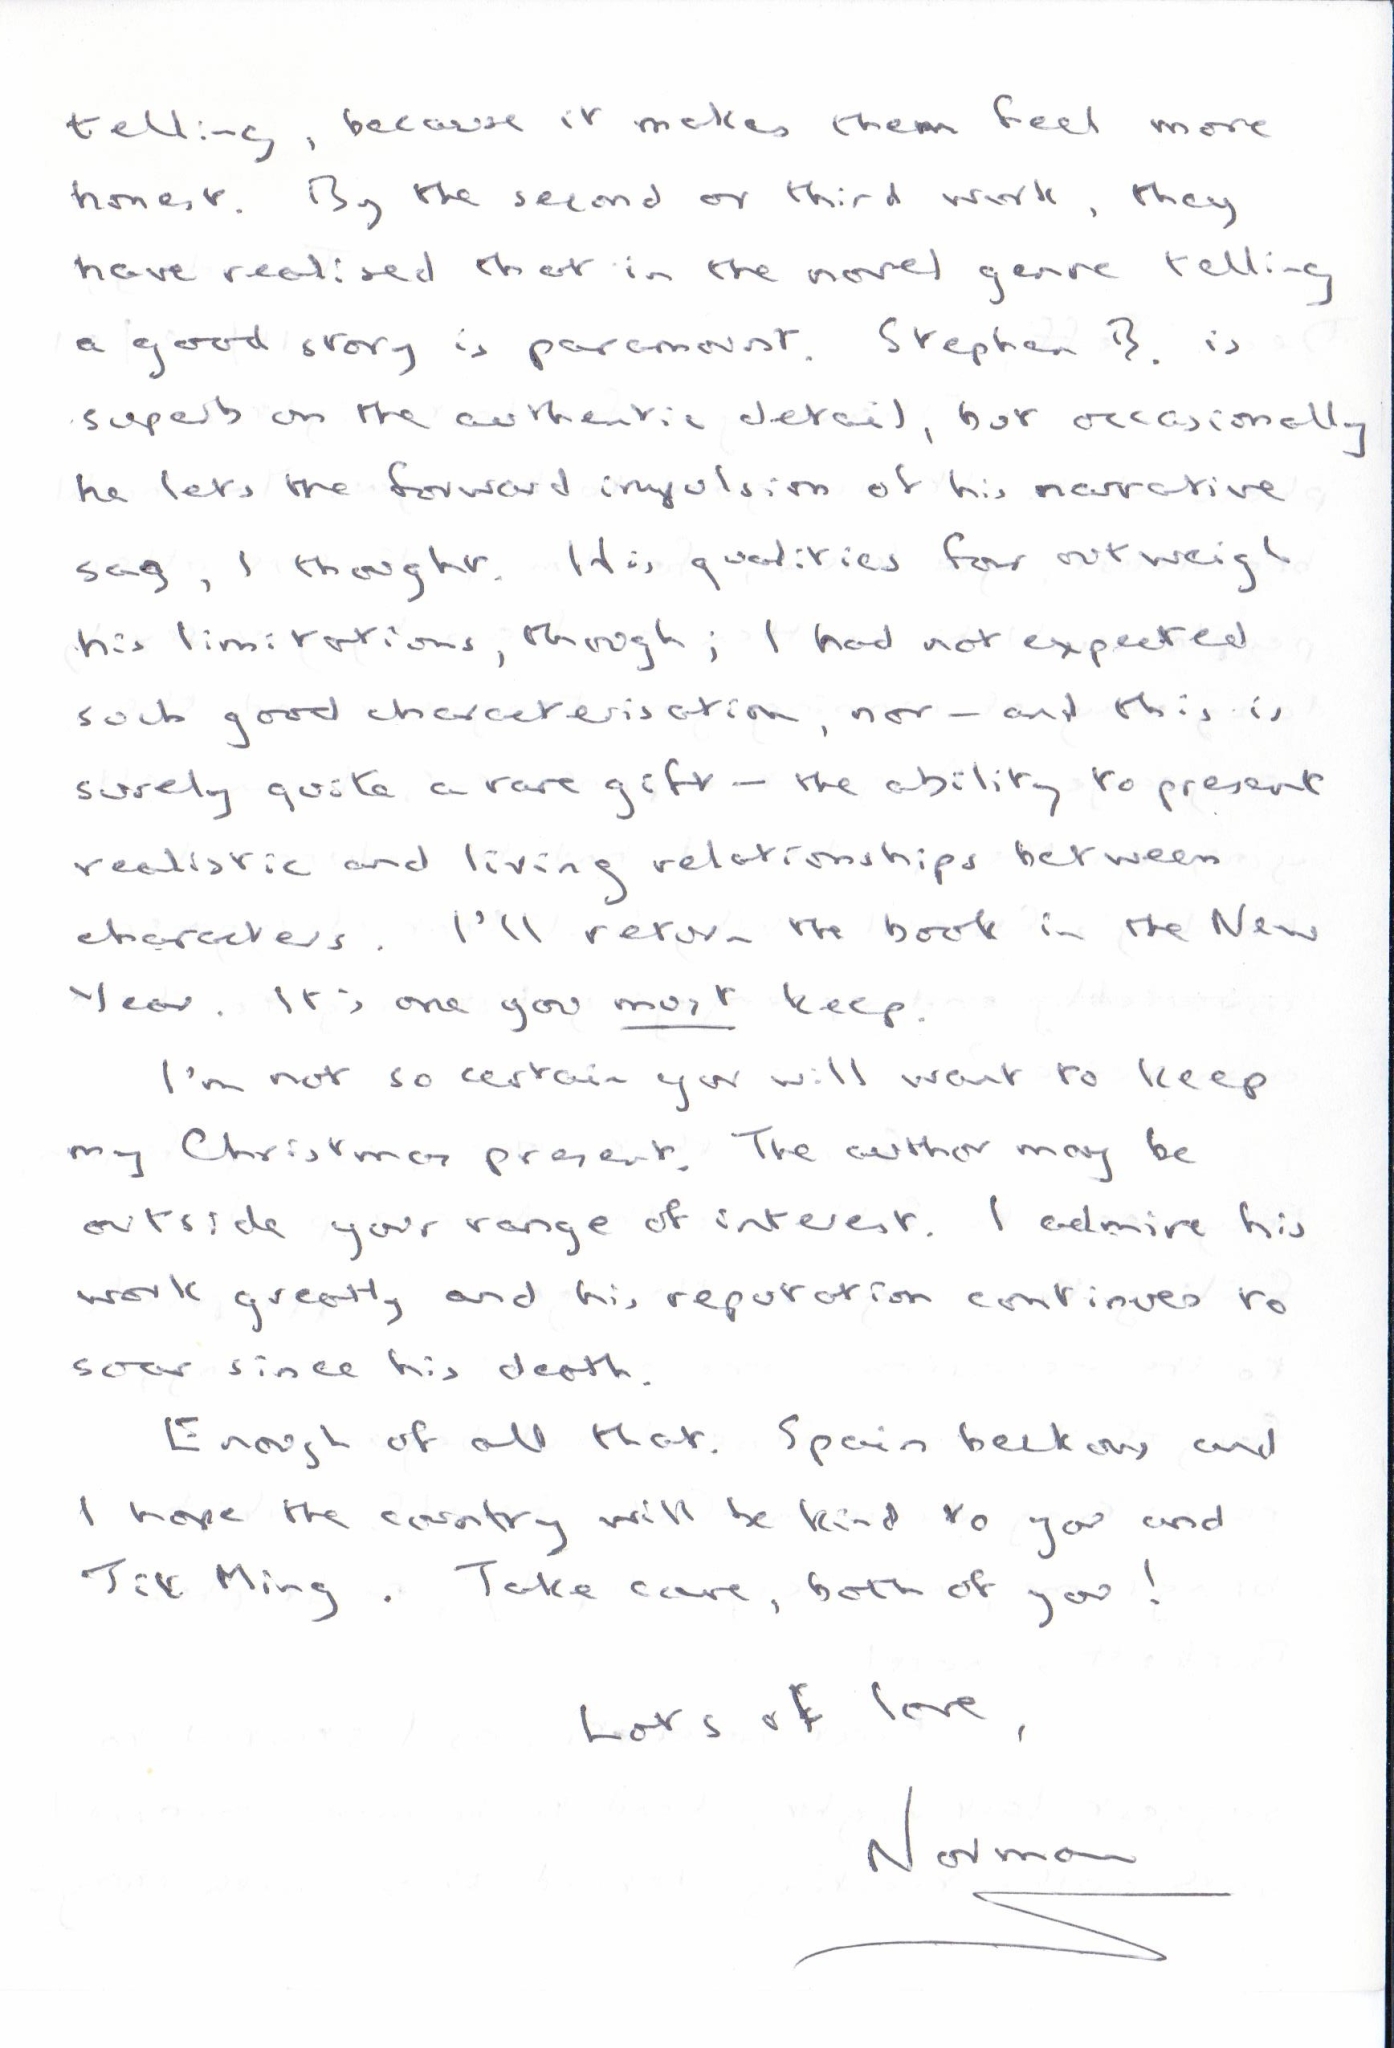 telling, because it makes them feel more
honest. By the second or third work, they
have realised that in the novel genre telling
a good story is paramount. Stephen B. is
superb on the authentic detail, but occasionally
he lets the forward impulsion of his narrative
sag, I thought. His qualities far outweigh
his limitations, though; I had not expected
such good characterisation, nor – and this is
surely quite a rare gift – the ability to present
realistic and living relationships between
characters. I'll return the book in the New
Year. It's one you must keep.
I'm not so certain you will want to keep
my Christmas present. The author may be
outside your range of interest. I admire his
work greatly and his reputation continues to
soar since his death.
Enough of all that. Spain beckons and
I hope the country will be kind to you and
Jit Ming. Take care, both of you!
Lots of love,
Norman